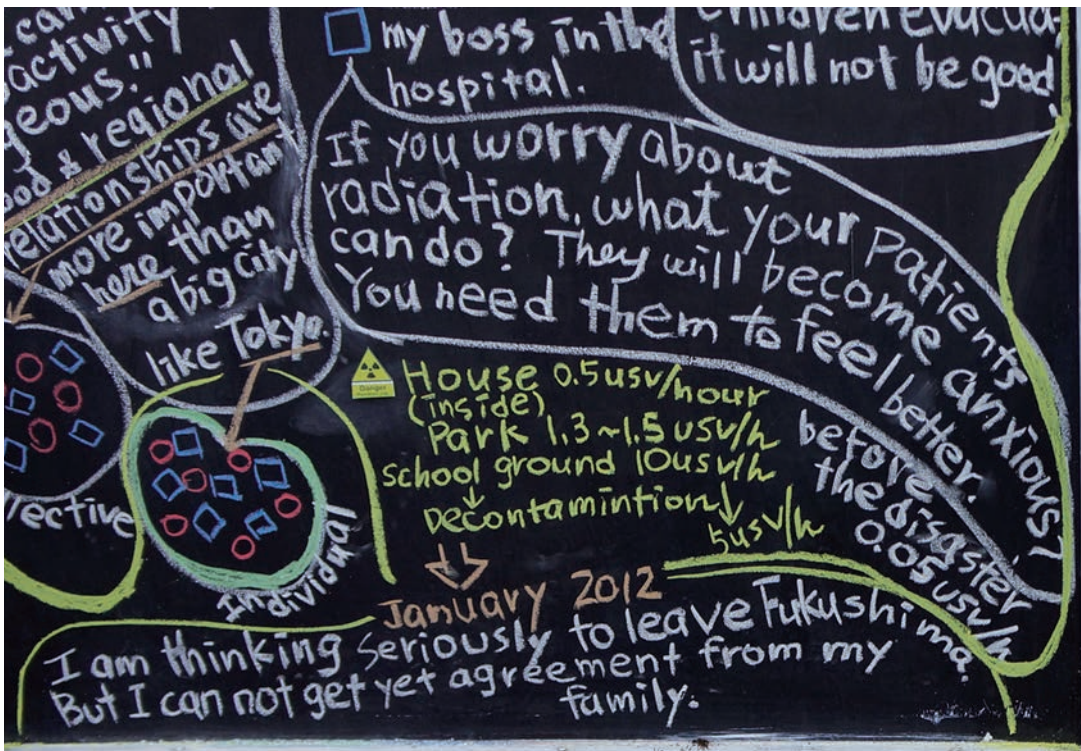 activity
geous."
& regional
relationships are
more important
here than
a big city
like Tokyo.
my boss in the
hospital.
children evacua
it will not be good.
If you worry about
radiation, what your patients
can do? They will become anxious?
You need them to feel better.
Danger
House 0.5usv/hour
(inside)
Park 1.3~1.5usv/h
school ground 10usv/h
Decontamintion
5usv/h
before
the disaster
0.05usv/h
lective
Individual
January 2012
I am thinking seriously to leave Fukushima.
But I can not get yet agreement from my
family.